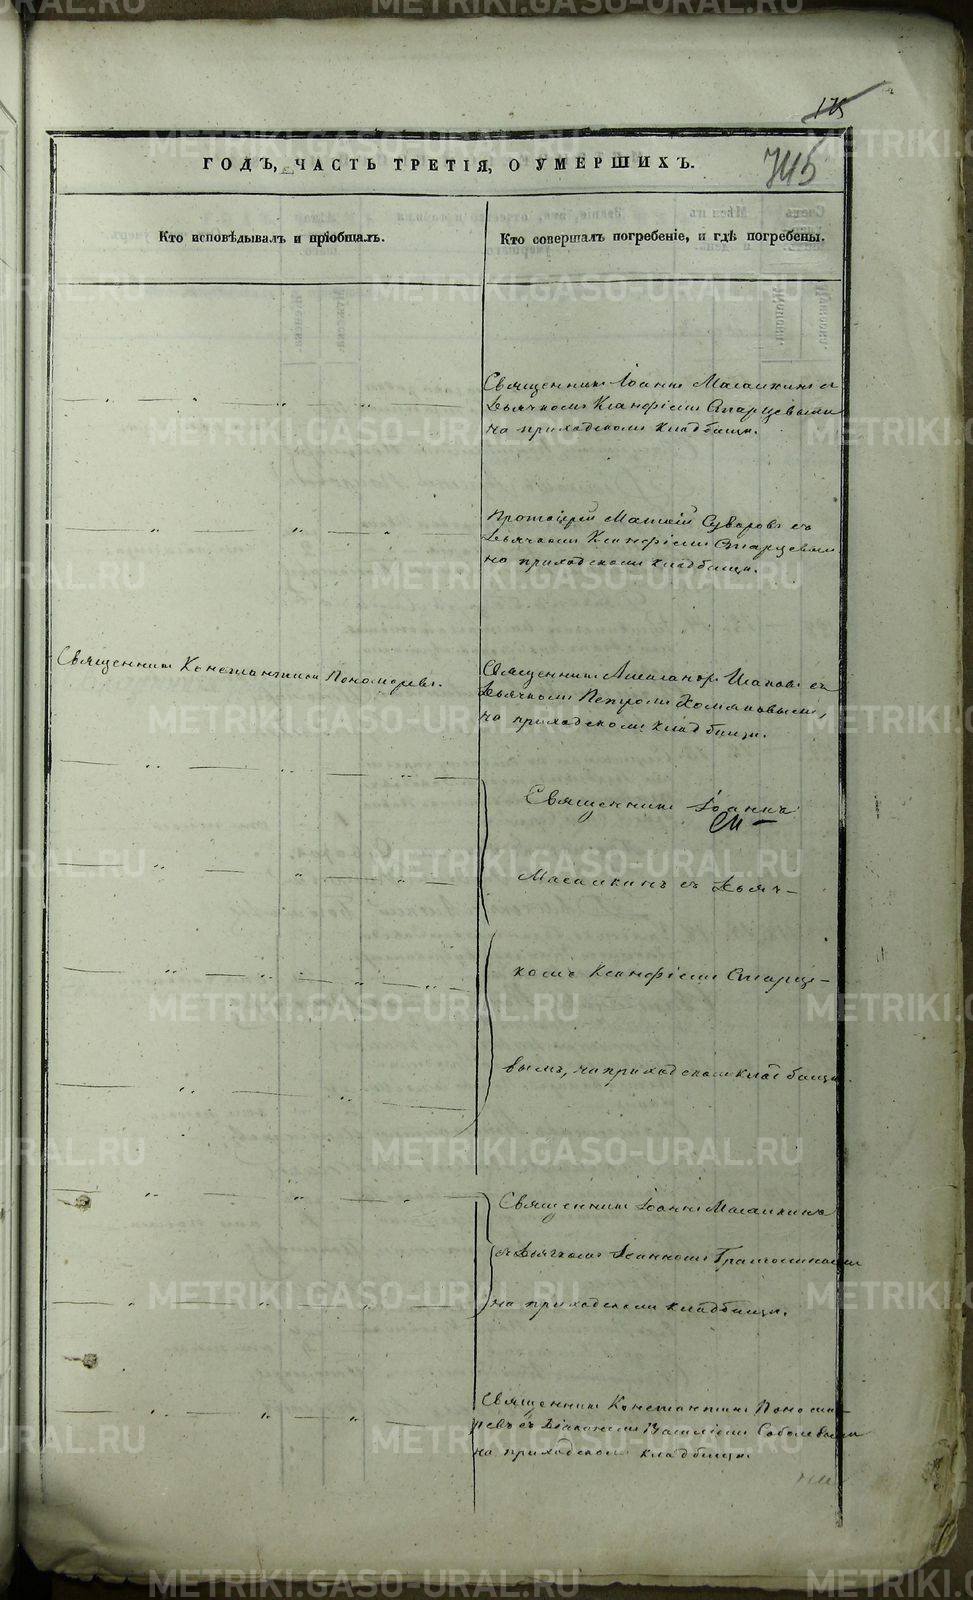 METRIKI.GASO-URAL.RU
175
ГОДЪ, ЧАСТЬ ТРЕТІЯ, О УМЕРШИХЪ.
745
Кто исповѣдывалъ и пріобщалъ.
Кто совершалъ погребеніе, и гдѣ погребены.
Священникъ Іоаннъ Масалкинъ съ
Дьячкомъ Ксанфіемъ Старцевымъ
на приходскомъ кладбищѣ.
Протоіерей Матвій Суворовъ съ
Дьячкомъ Ксанфіемъ Старцевымъ
на приходскомъ кладбищѣ.
Священникъ Константинъ Пономаревъ.
Священникъ Александръ съ
Дьячкомъ Петромъ Хомяковымъ,
на приходскомъ кладбищѣ.
Священникъ Іоаннъ
Масалкинъ съ Дьяч-
комъ Ксанфіемъ Старце-
вымъ, на приходскомъ кладбищѣ.
Священникъ Іоаннъ Масалкинъ
съ Дьячкомъ Іоанномъ
на приходскомъ кладбищѣ.
Священникъ Константинъ Понома-
ревъ съ Діакономъ Василіемъ Соболевымъ
на приходскомъ кладбищѣ.